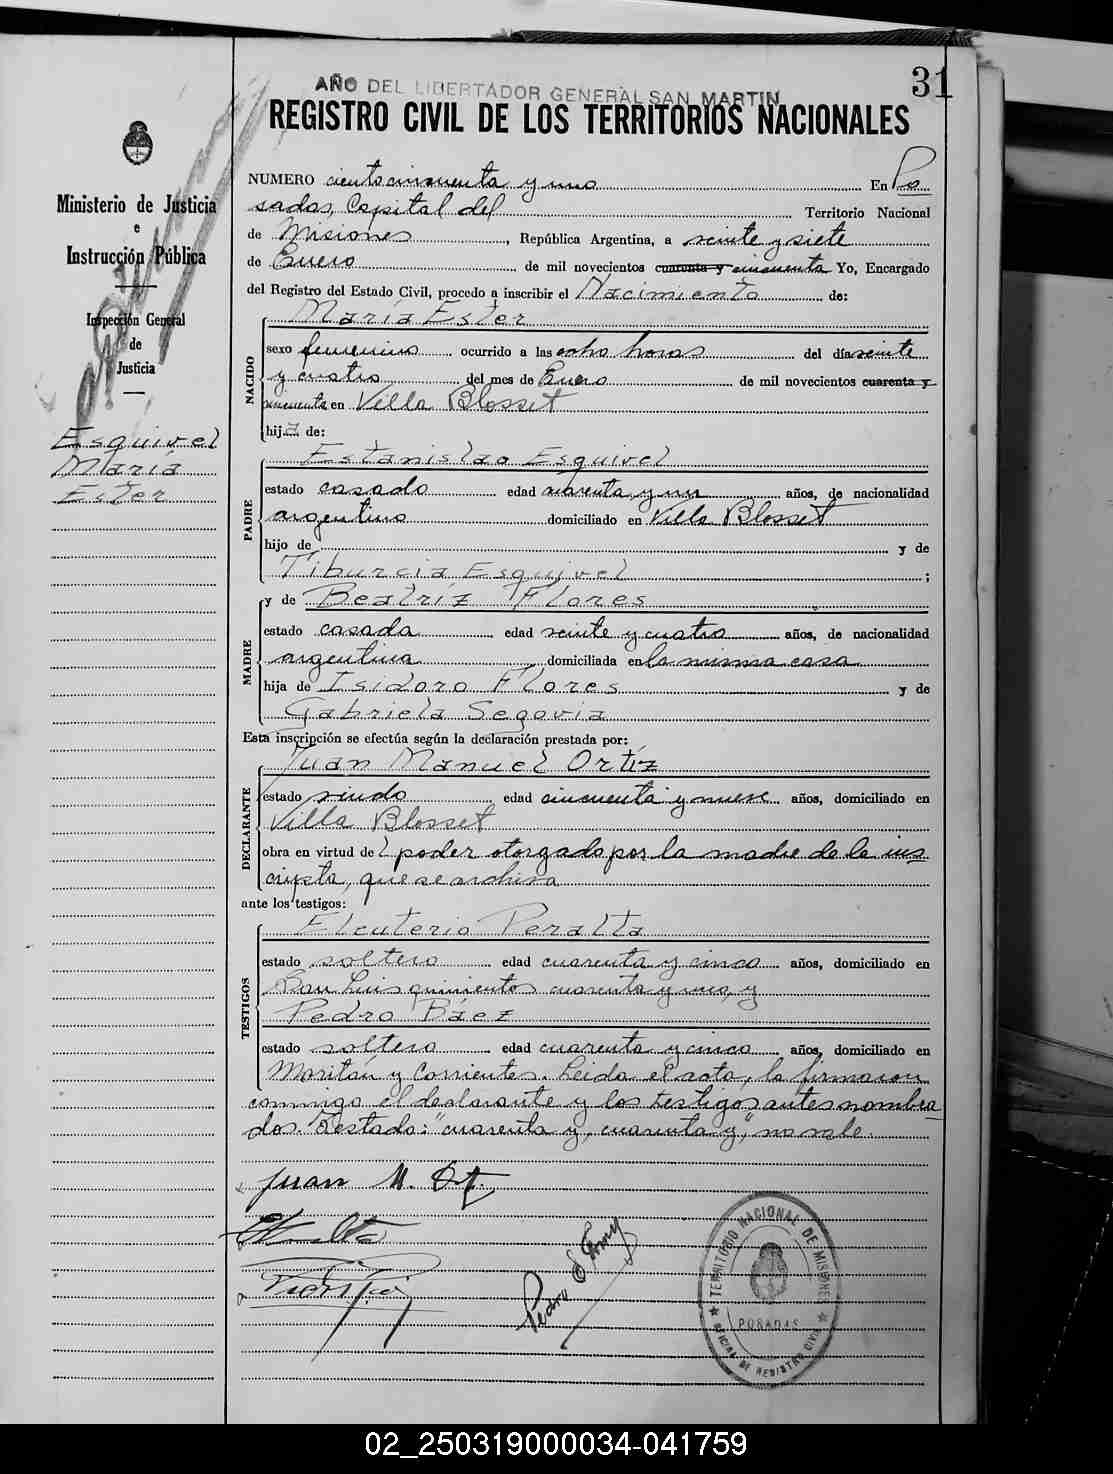 31
AÑO DEL LIBERTADOR GENERAL SAN MARTIN
REGISTRO CIVIL DE LOS TERRITORIOS NACIONALES
Ministerio de Justicia
e
Instrucción Pública
Inspección General
de
Justicia
Esquivel
María
Ester
NUMERO ciento cincuenta y uno En Po
sadas, Capital del Territorio Nacional
de Misiones, República Argentina, a veinte y siete
de Enero de mil novecientos cuarenta y cincuenta Yo, Encargado
del Registro del Estado Civil, procedo a inscribir el Nacimiento de:
NACIDO
María Ester
sexo femenino ocurrido a las ocho horas del día veinte
y cuatro del mes de Enero de mil novecientos cuarenta y
cincuenta en Villa Blosset
hija de:
PADRE
Estanislao Esquivel
estado casado edad cuarenta y un años, de nacionalidad
argentino domiciliado en Villa Blosset
hijo de y de
Tiburcia Esquivel;
MADRE
y de Beatríz Flores
estado casada edad veinte y cuatro años, de nacionalidad
argentina domiciliada en la misma casa
hija de Isidoro Flores y de
Gabriela Segovia
Esta inscripción se efectúa según la declaración prestada por:
DECLARANTE
Juan Manuel Ortíz
estado viudo edad cincuenta y nueve años, domiciliado en
Villa Blosset
obra en virtud del poder otorgado por la madre de la ins
cripta, que se archiva
ante los testigos:
TESTIGOS
Eleuterio Peralta
estado soltero edad cuarenta y cinco años, domiciliado en
San Luis quinientos cuarenta y uno, y
Pedro Báez
estado soltero edad cuarenta y cinco años, domiciliado en
Moritán y Corrientes. Leída el acta, la firmaron
conmigo el declarante y los testigos antes nombra
dos. Testado: "cuarenta y, cuarenta y," no vale.
Juan M. Ort.
Pedro
TERRITORIO NACIONAL DE MISIONES
POSADAS
OFICINA DE REGISTRO CIVIL
02_250319000034-041759